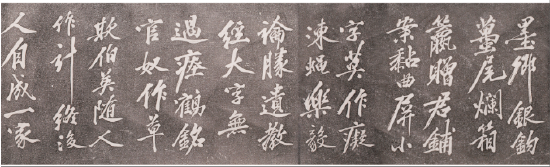 墨卿銀鈎
蠆尾爛箱
籝贈君鋪
案黏曲屏小
字莫作癡
凍蝇樂毅
論勝遺教
經大字無
過瘞鶴銘
官奴作草
欺伯英随人
作計終後
人自成一家